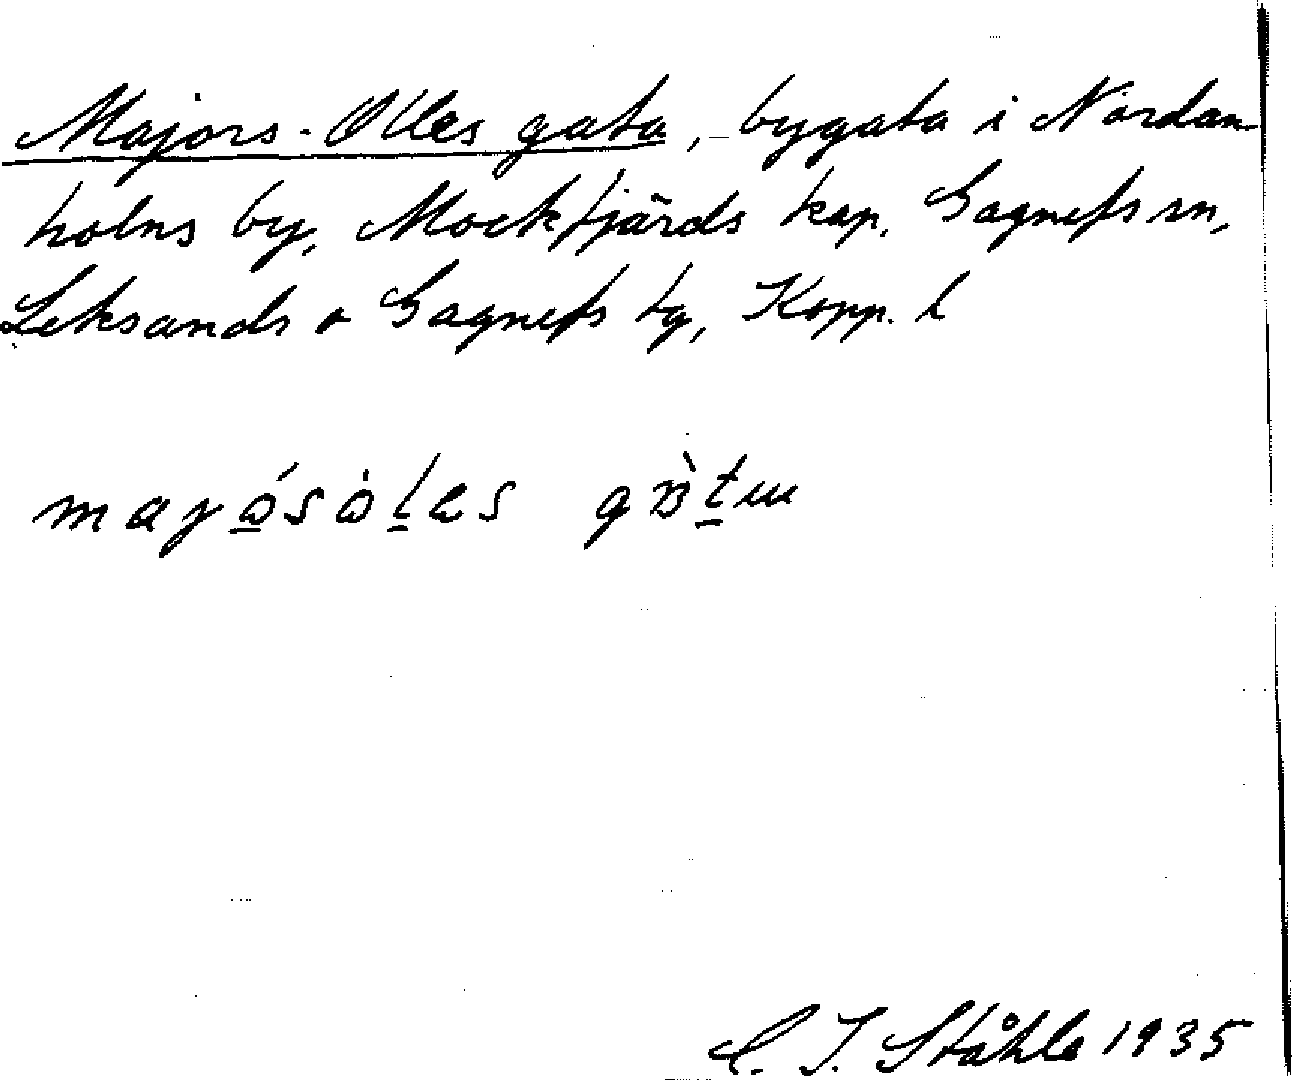 Majors-Olles gata, bygata i Nordan-
holns by, Mockfjärds kap. Gagnefs sn,
Leksands o Gagnefs tg, Kopp. l
C. I. Ståhle 1935